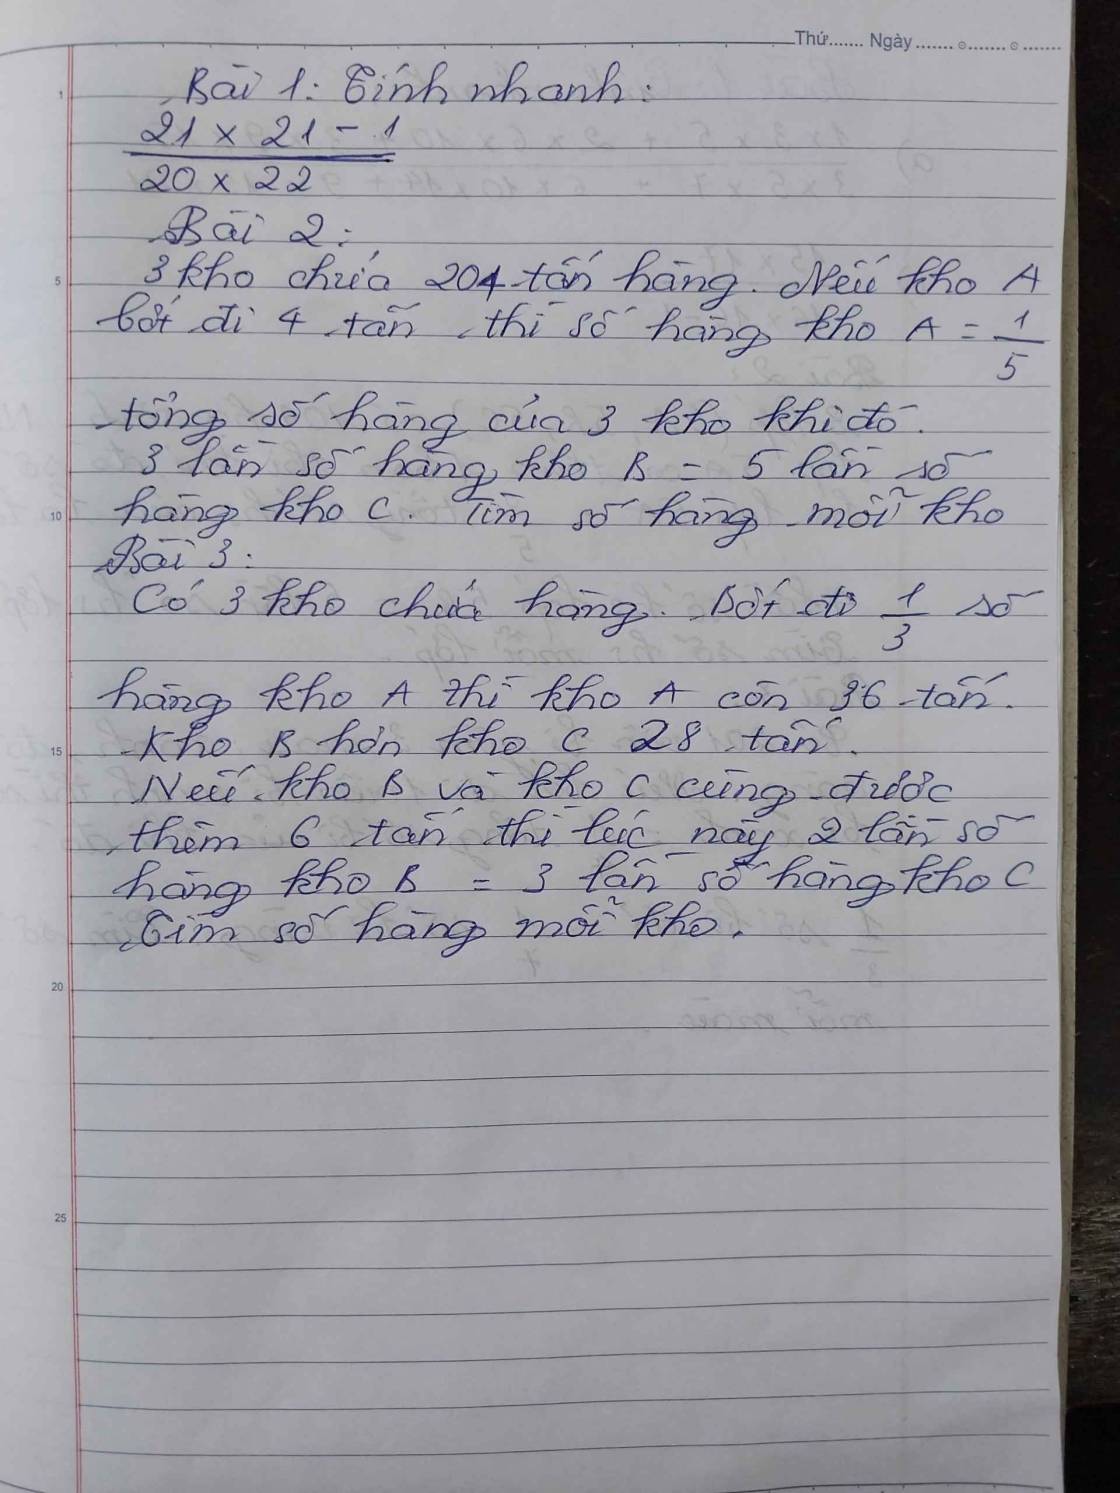 Thứ....... Ngày ....... ....... .......
Bài 1: Tính nhanh:
21 x 21 - 1
20 x 22
Bài 2:
3 kho chứa 204 tấn hàng. Nếu kho A
bớt đi 4 tấn thì số hàng kho A = 1/5
tổng số hàng của 3 kho khi đó.
3 lần số hàng kho B = 5 lần số
hàng kho C. Tìm số hàng mỗi kho
Bài 3:
Có 3 kho chứa hàng. Bớt đi 1/3 số
hàng kho A thì kho A còn 36 tấn.
Kho B hơn kho C 28 tấn.
Nếu kho B và kho C cùng được
thêm 6 tấn thì lúc này 2 lần số
hàng kho B = 3 lần số hàng kho C
Tìm số hàng mỗi kho.
1
5
10
15
20
25